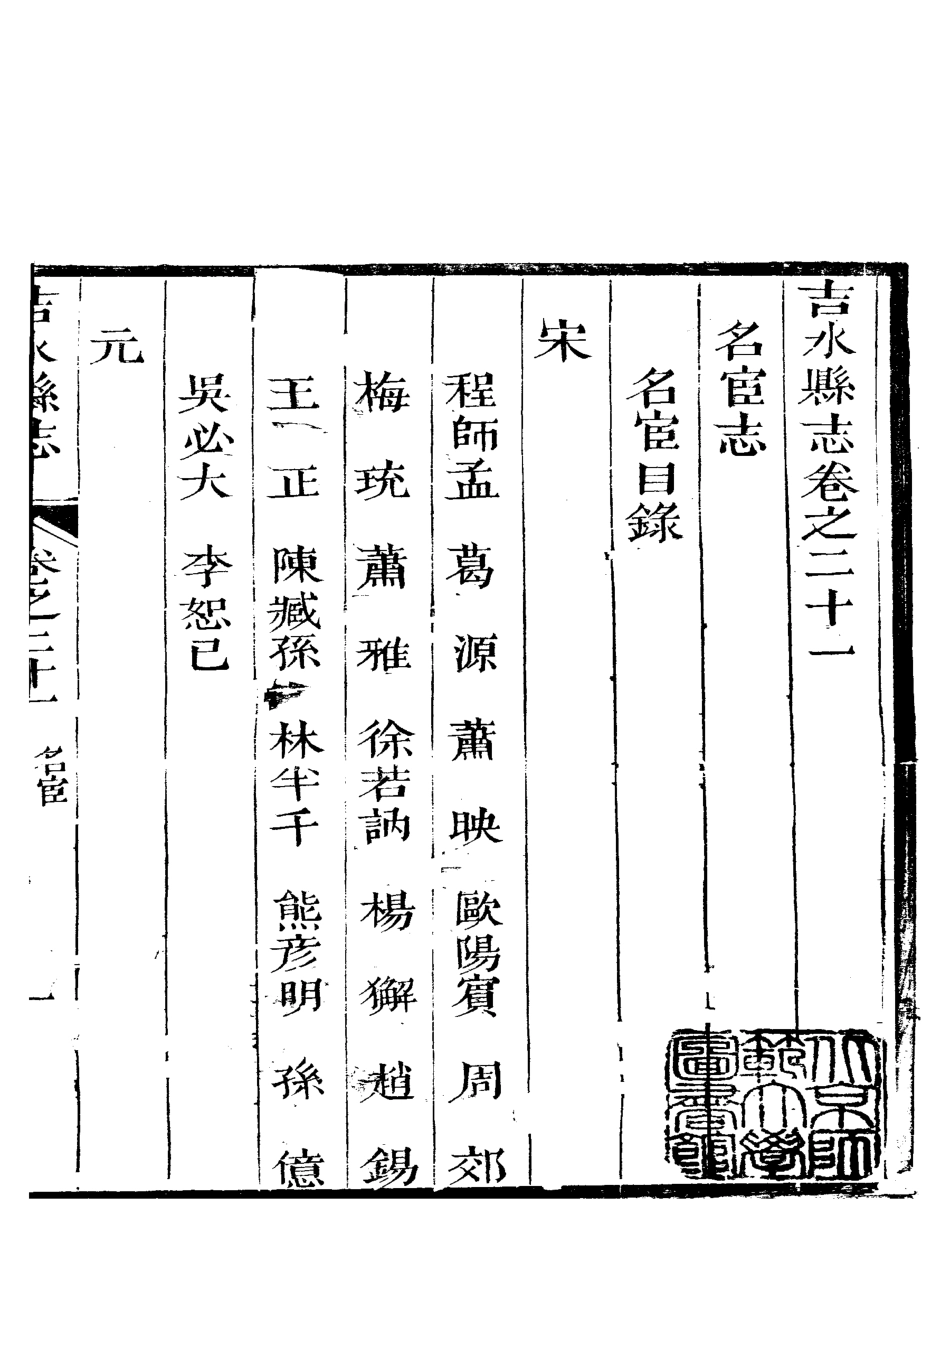 吉水縣志卷之二十一
名宦志
名宦目錄
宋
程師孟 葛源 蕭映 歐陽賓 周郊
梅琉 蕭雅 徐若訥 楊獬 趙錫
王正 陳臧孫 林半千 熊彦明 孫億
吳必大 李恕已
元
吉水縣志 卷之二十一 名宦 一
北京師範大學圖書館